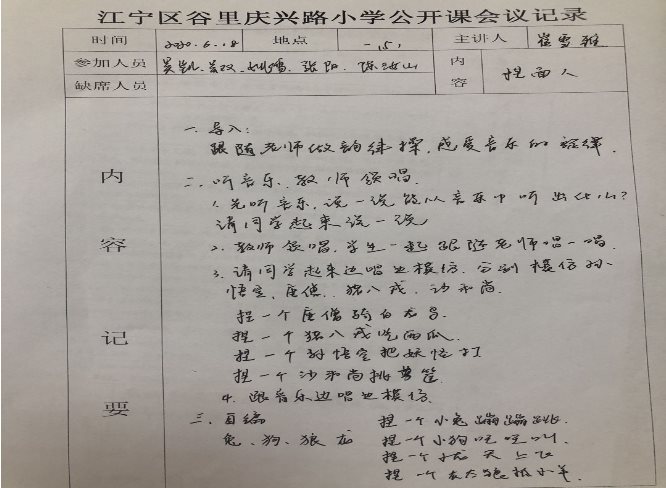 江宁区谷里庆兴路小学公开课会议记录
时间 2020.6.18 地点 一(5) 主讲人 崔雪雅
参加人员 吴凯、吴双、 张阳、陈汝山 内容 捏面人
缺席人员
内容记要
一、导入:
跟随老师做韵律操,感受音乐的旋律.
二、听音乐、教师领唱.
1.先听音乐,说一说能从音乐中听出什么?
请同学起来说一说
2.教师领唱,学生一起跟随老师唱一唱.
3.请同学起来边唱边模仿.分别模仿孙
悟空,唐僧,猪八戒,沙和尚.
捏一个唐僧骑白龙马
捏一个猪八戒吃西瓜.
捏一个孙悟空把妖怪打
捏一个沙和尚挑箩筐
4.跟音乐边唱边模仿.
三、自编 捏一个小兔蹦蹦跳.
兔、狗、狼、龙 捏一个小狗汪汪叫.
捏一个小龙天上飞
捏一个灰太狼抓小羊.